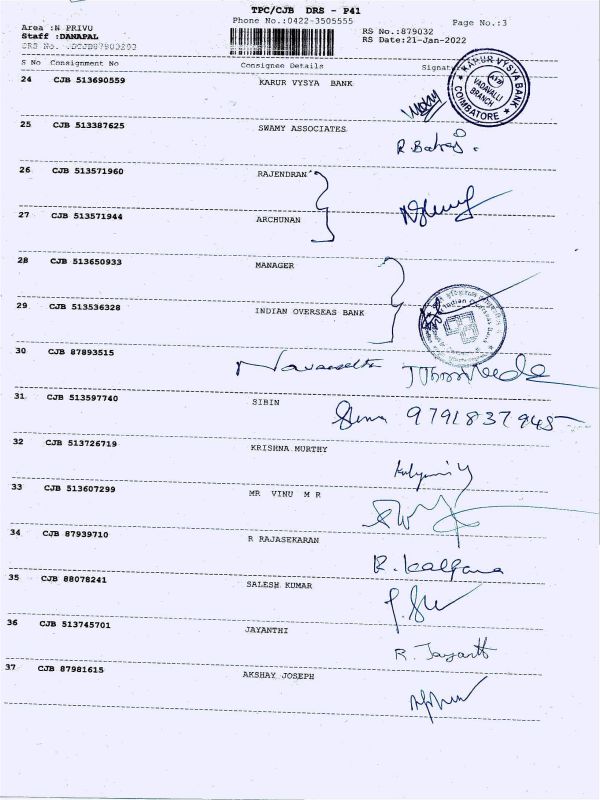 TPC/CJB DRS - P41
Phone No.:0422-3505555
Page No.:3
Area :N PRIVU
Staff :DANAPAL
RS No.:879032
RS Date:21-Jan-2022
S No Consignment No Consignee Details
24 CJB 513690559 KARUR VYSYA BANK
KARUR VYSYA BANK
VADAVALLI
BRANCH
COIMBATORE
25 CJB 513387625 SWAMY ASSOCIATES
26 CJB 513571960 RAJENDRAN
27 CJB 513571944 ARCHUNAN
28 CJB 513650933 MANAGER
29 CJB 513536328 INDIAN OVERSEAS BANK
Indian Overseas Bank
30 CJB 87893515
31 CJB 513597740 SIBIN 9791837945
32 CJB 513726719 KRISHNA MURTHY
33 CJB 513607299 MR VINU M R
34 CJB 87939710 R RAJASEKARAN
R. Kalpana
35 CJB 88078241 SALESH KUMAR
36 CJB 513745701 JAYANTHI
R. Jayanth
37 CJB 87981615 AKSHAY JOSEPH